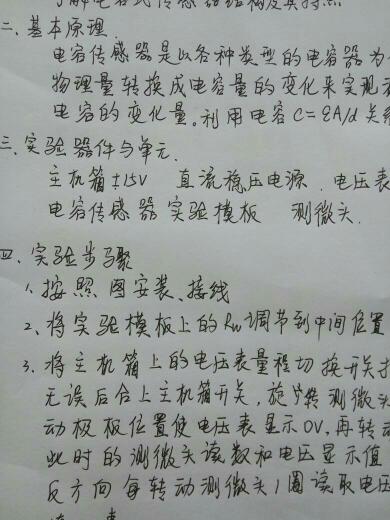 了解电容式传感器结构及其特点
二、基本原理.
电容传感器是以各种类型的电容器为
物理量转换成电容量的变化来实现
电容的变化量。利用电容C=εA/d关
三、实验器件与单元.
主机箱±15V 直流稳压电源. 电压表
电容传感器实验模板 测微头.
四、实验步骤
1、按照图安装、接线
2、将实验模板上的Rw调节到中间位置
3、将主机箱上的电压表量程切换开关
无误后合上主机箱开关,旋转测微头
动极板位置使电压表显示0V,再转动
此时的测微头读数和电压显示值
反方向每转动测微头1圈读取电压